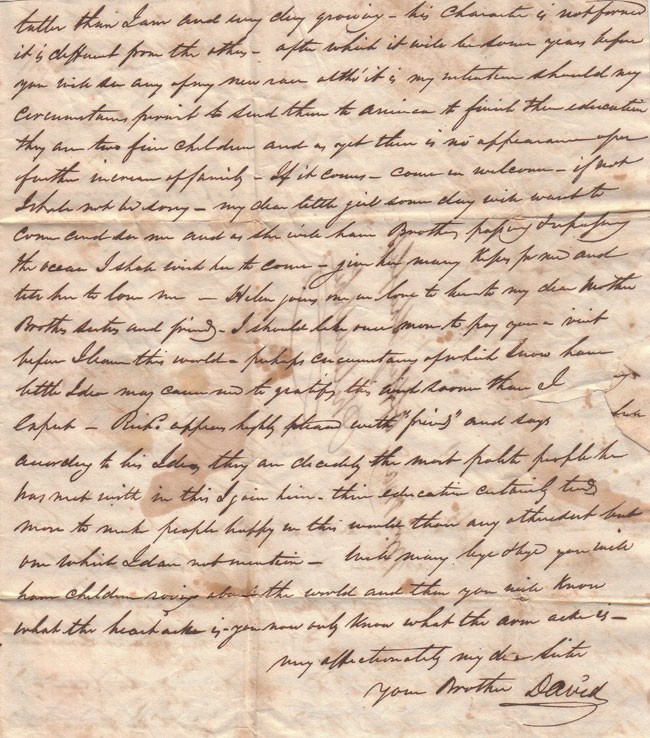 taller than I am and every day growing - his character is not formed
it is different from the other - after which it will be some years before
you will see any of my new race altho' it is my intention should my
circumstances permit to send them to America to finish their education
they are two fine children and as yet there is no appearance of
further increase of family - If it comes - come in welcome - if not
I shall not be sorry - my dear little girl some day will want to
come and see me and as she will have Brothers passing & repassing
the ocean I shall wish her to come - give her many kisses for me and
tell her to love me - Helen joins me in love to her to my dear Mother
Brothers sisters and friends - I should like once more to pay you a visit
before I leave this world - perhaps circumstances of which I now have
little Idea may cause me to gratify this wish sooner than I
expect - Richd appears highly pleased with "friends" and says
according to his Ideas they are decidedly the most polite people he
has met with in this I join him - their education certainly tends
more to make people happy in this world than any other sect but
one which I dare not mention - will many bye & bye you will
have children roving about the world and then you will know
what the heart ache is - you now only know what the arm ache is -
very affectionately my dear Sister
Your Brother David